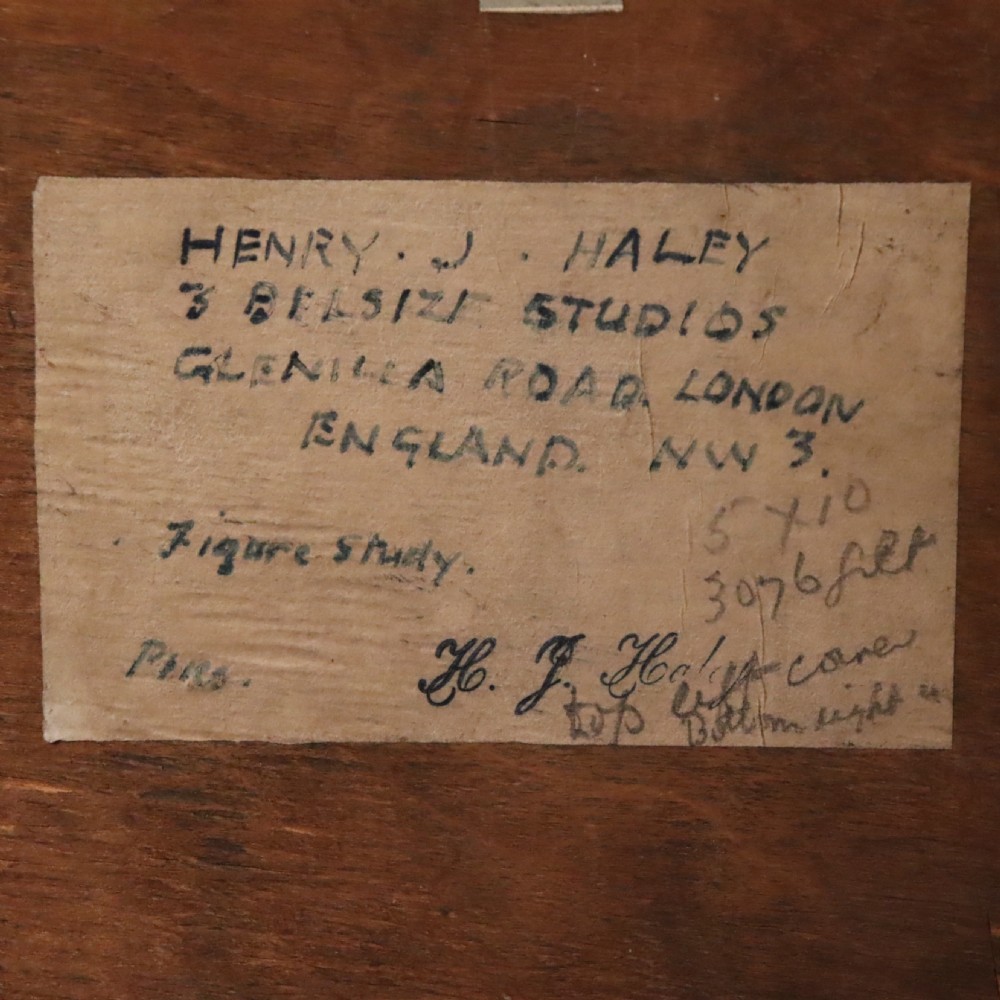 HENRY . J . HALEY
3 BELSIZE STUDIOS
GLENILLA ROAD. LONDON
ENGLAND. NW 3.
5 x 10
Figure Study.
3076 gilt
H. J. Haley
top left corner
bottom right "